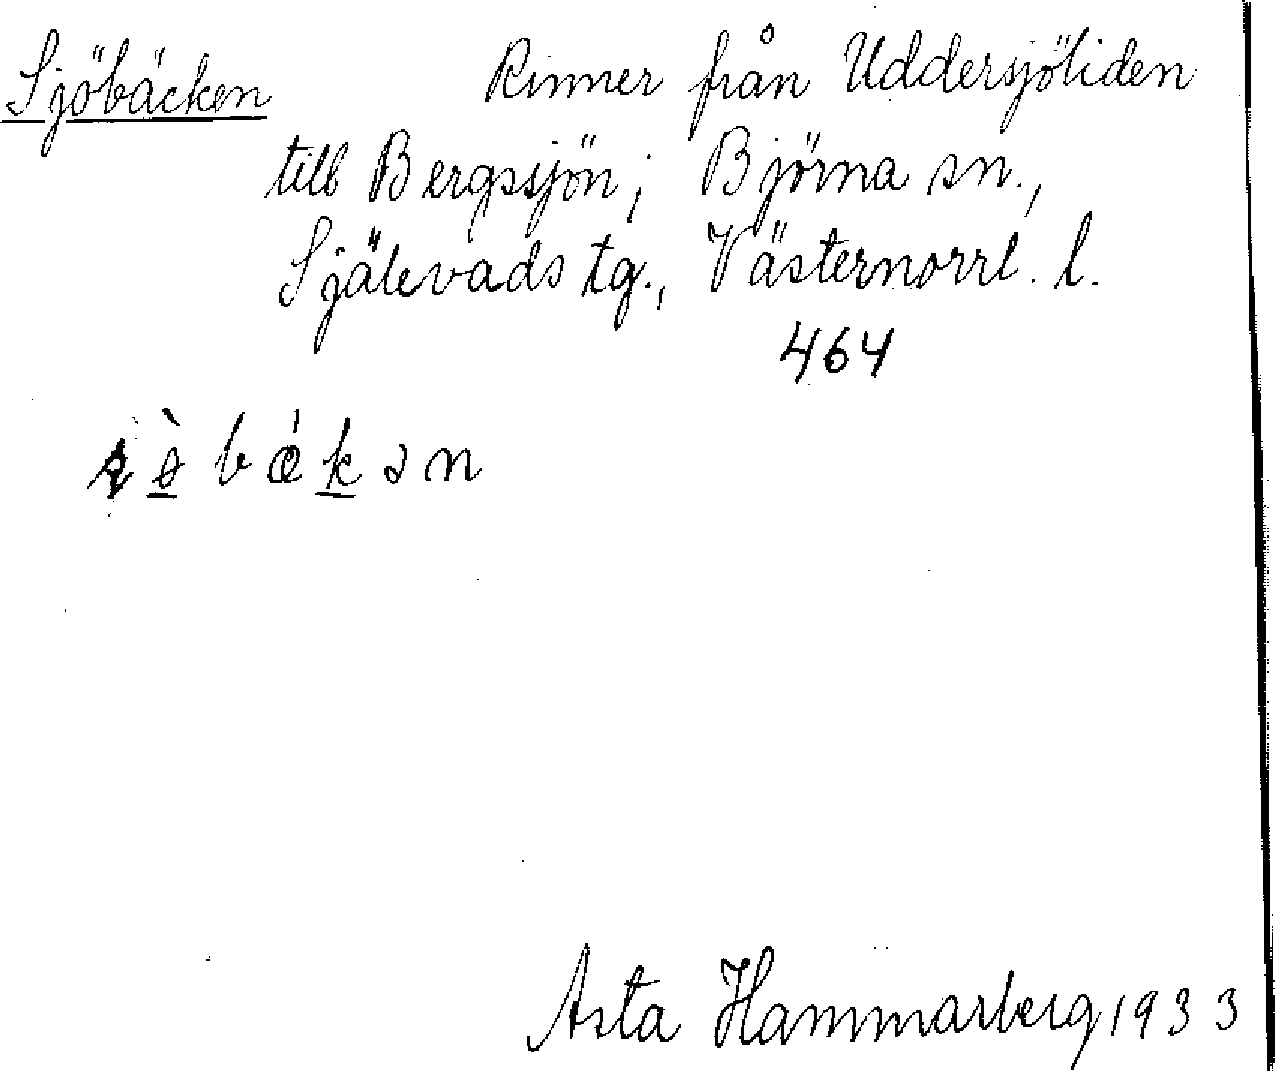 Sjöbäcken Rinner från Uddersjöliden
till Bergssjön; Björna sn.,
Själevads tg., Västernorrl. l.
464
Asta Hammarberg 1933